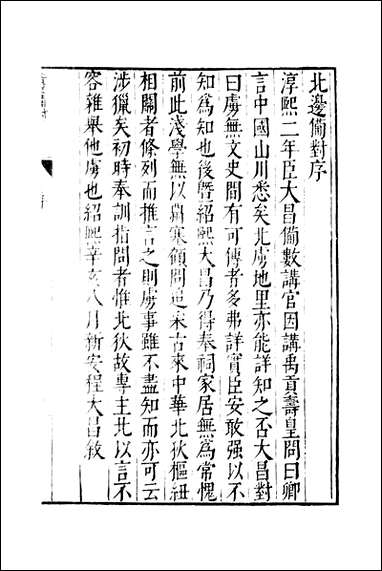 北邊備對序
淳熙二年臣大昌備數講官因講禹貢壽皇問曰卿
言中國山川悉矣北虜地里亦能詳知之否大昌對
曰虜無文史間有可傳者多弗詳實臣安敢强以不
知為知也後暨紹熙大昌乃得奉祠家居無為常愧
前此淺學無以塞顧問追采古來中華北狄樞紐
相關者條列而推言之則虜事雖不盡知而亦可云
涉獵矣初時奉訓指問者惟北狄故專主北以言不
容雜舉他虜也紹熙辛亥八月新安程大昌敘